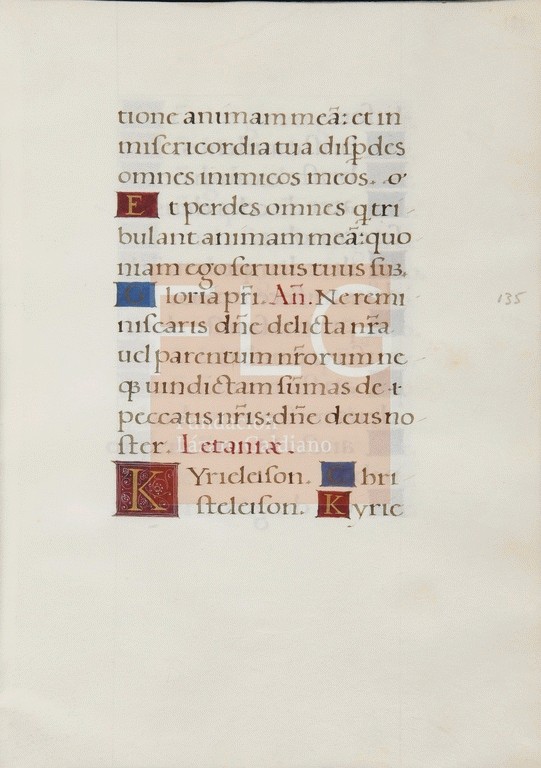 tione animam meã: et in
misericordia tua disp̱des
omnes inimicos meos. o'
Et perdes omnes q̱ tri
bulant animam meã: quo
niam ego seruus tuus sũ.
Gloria pr̃i. Añ. Ne remi
niscaris dñe delicta nr̃a
uel parentum nr̃orum ne
qꝫ uindictam sũmas de
peccatis nr̃is: dñe deus no
ster. Letaniæ.
KYrieleison. Chri
steleison. Kyrie
135
FLG
Fundación
Lázaro Galdiano